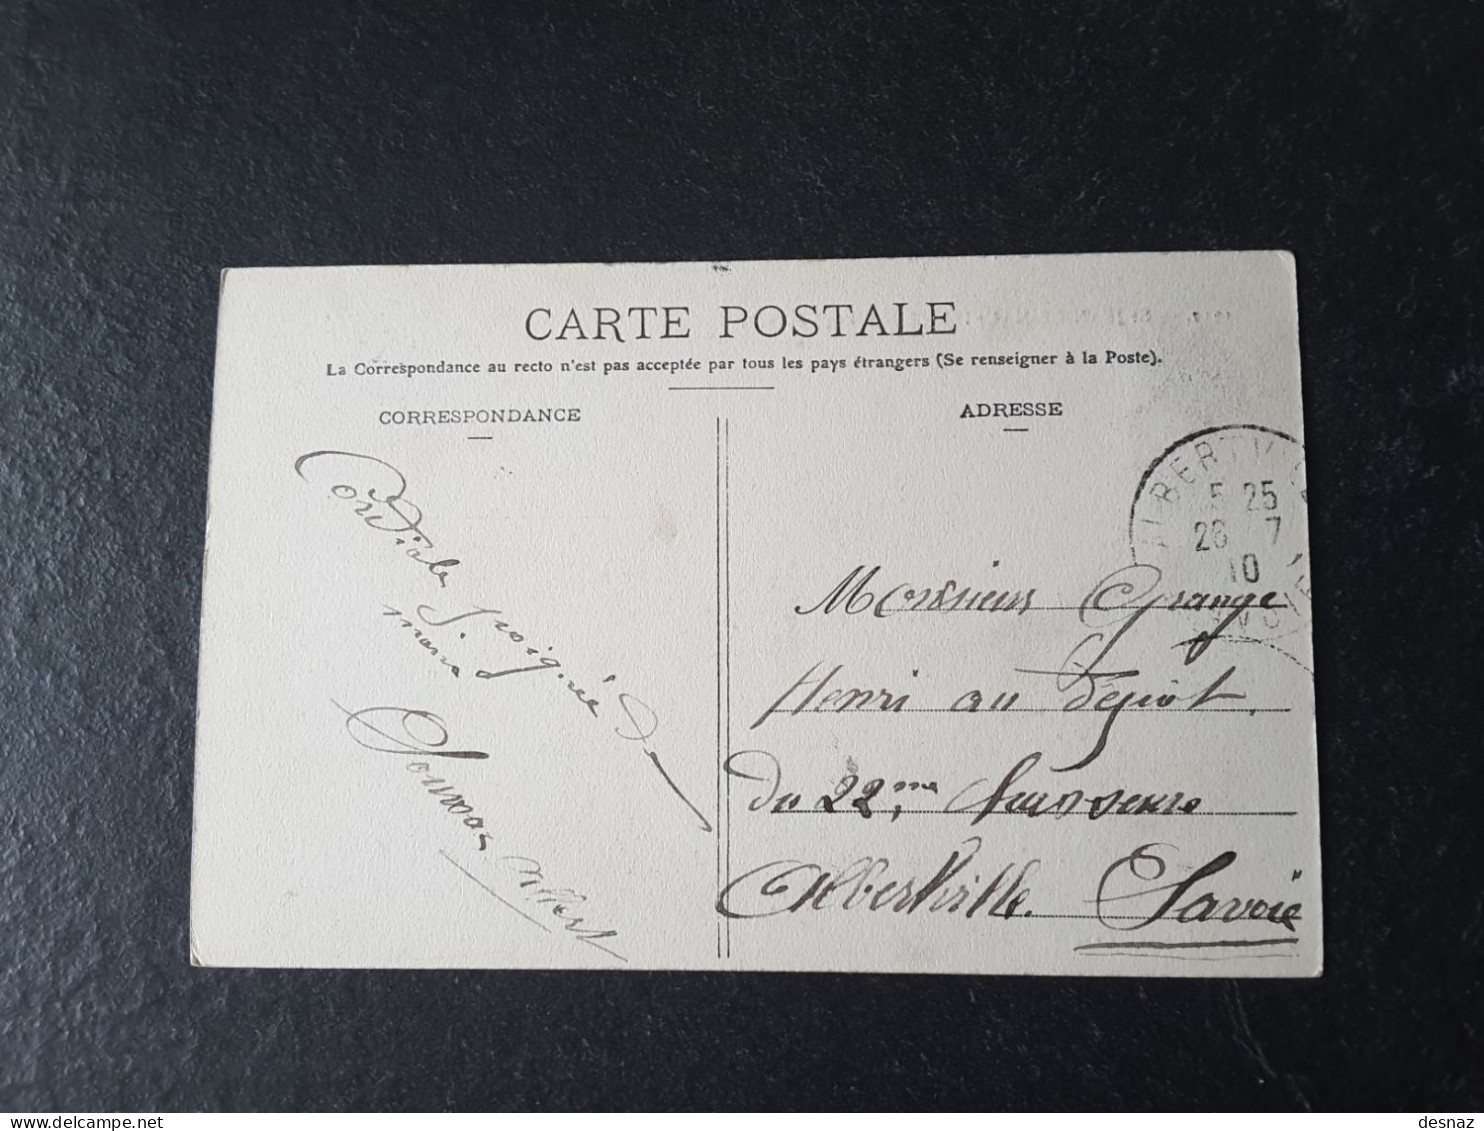 CARTE POSTALE
La Correspondance au recto n'est pas acceptée par tous les pays étrangers (Se renseigner à la Poste).
CORRESPONDANCE
ADRESSE
Cordiale poignée de
main
Albert
ALBERTVILLE
5 25
26 7
10
Monsieur Grange
Henri au dépôt
du 22ème chasseurs
Albertville. Savoie
delcampe.net
desnaz